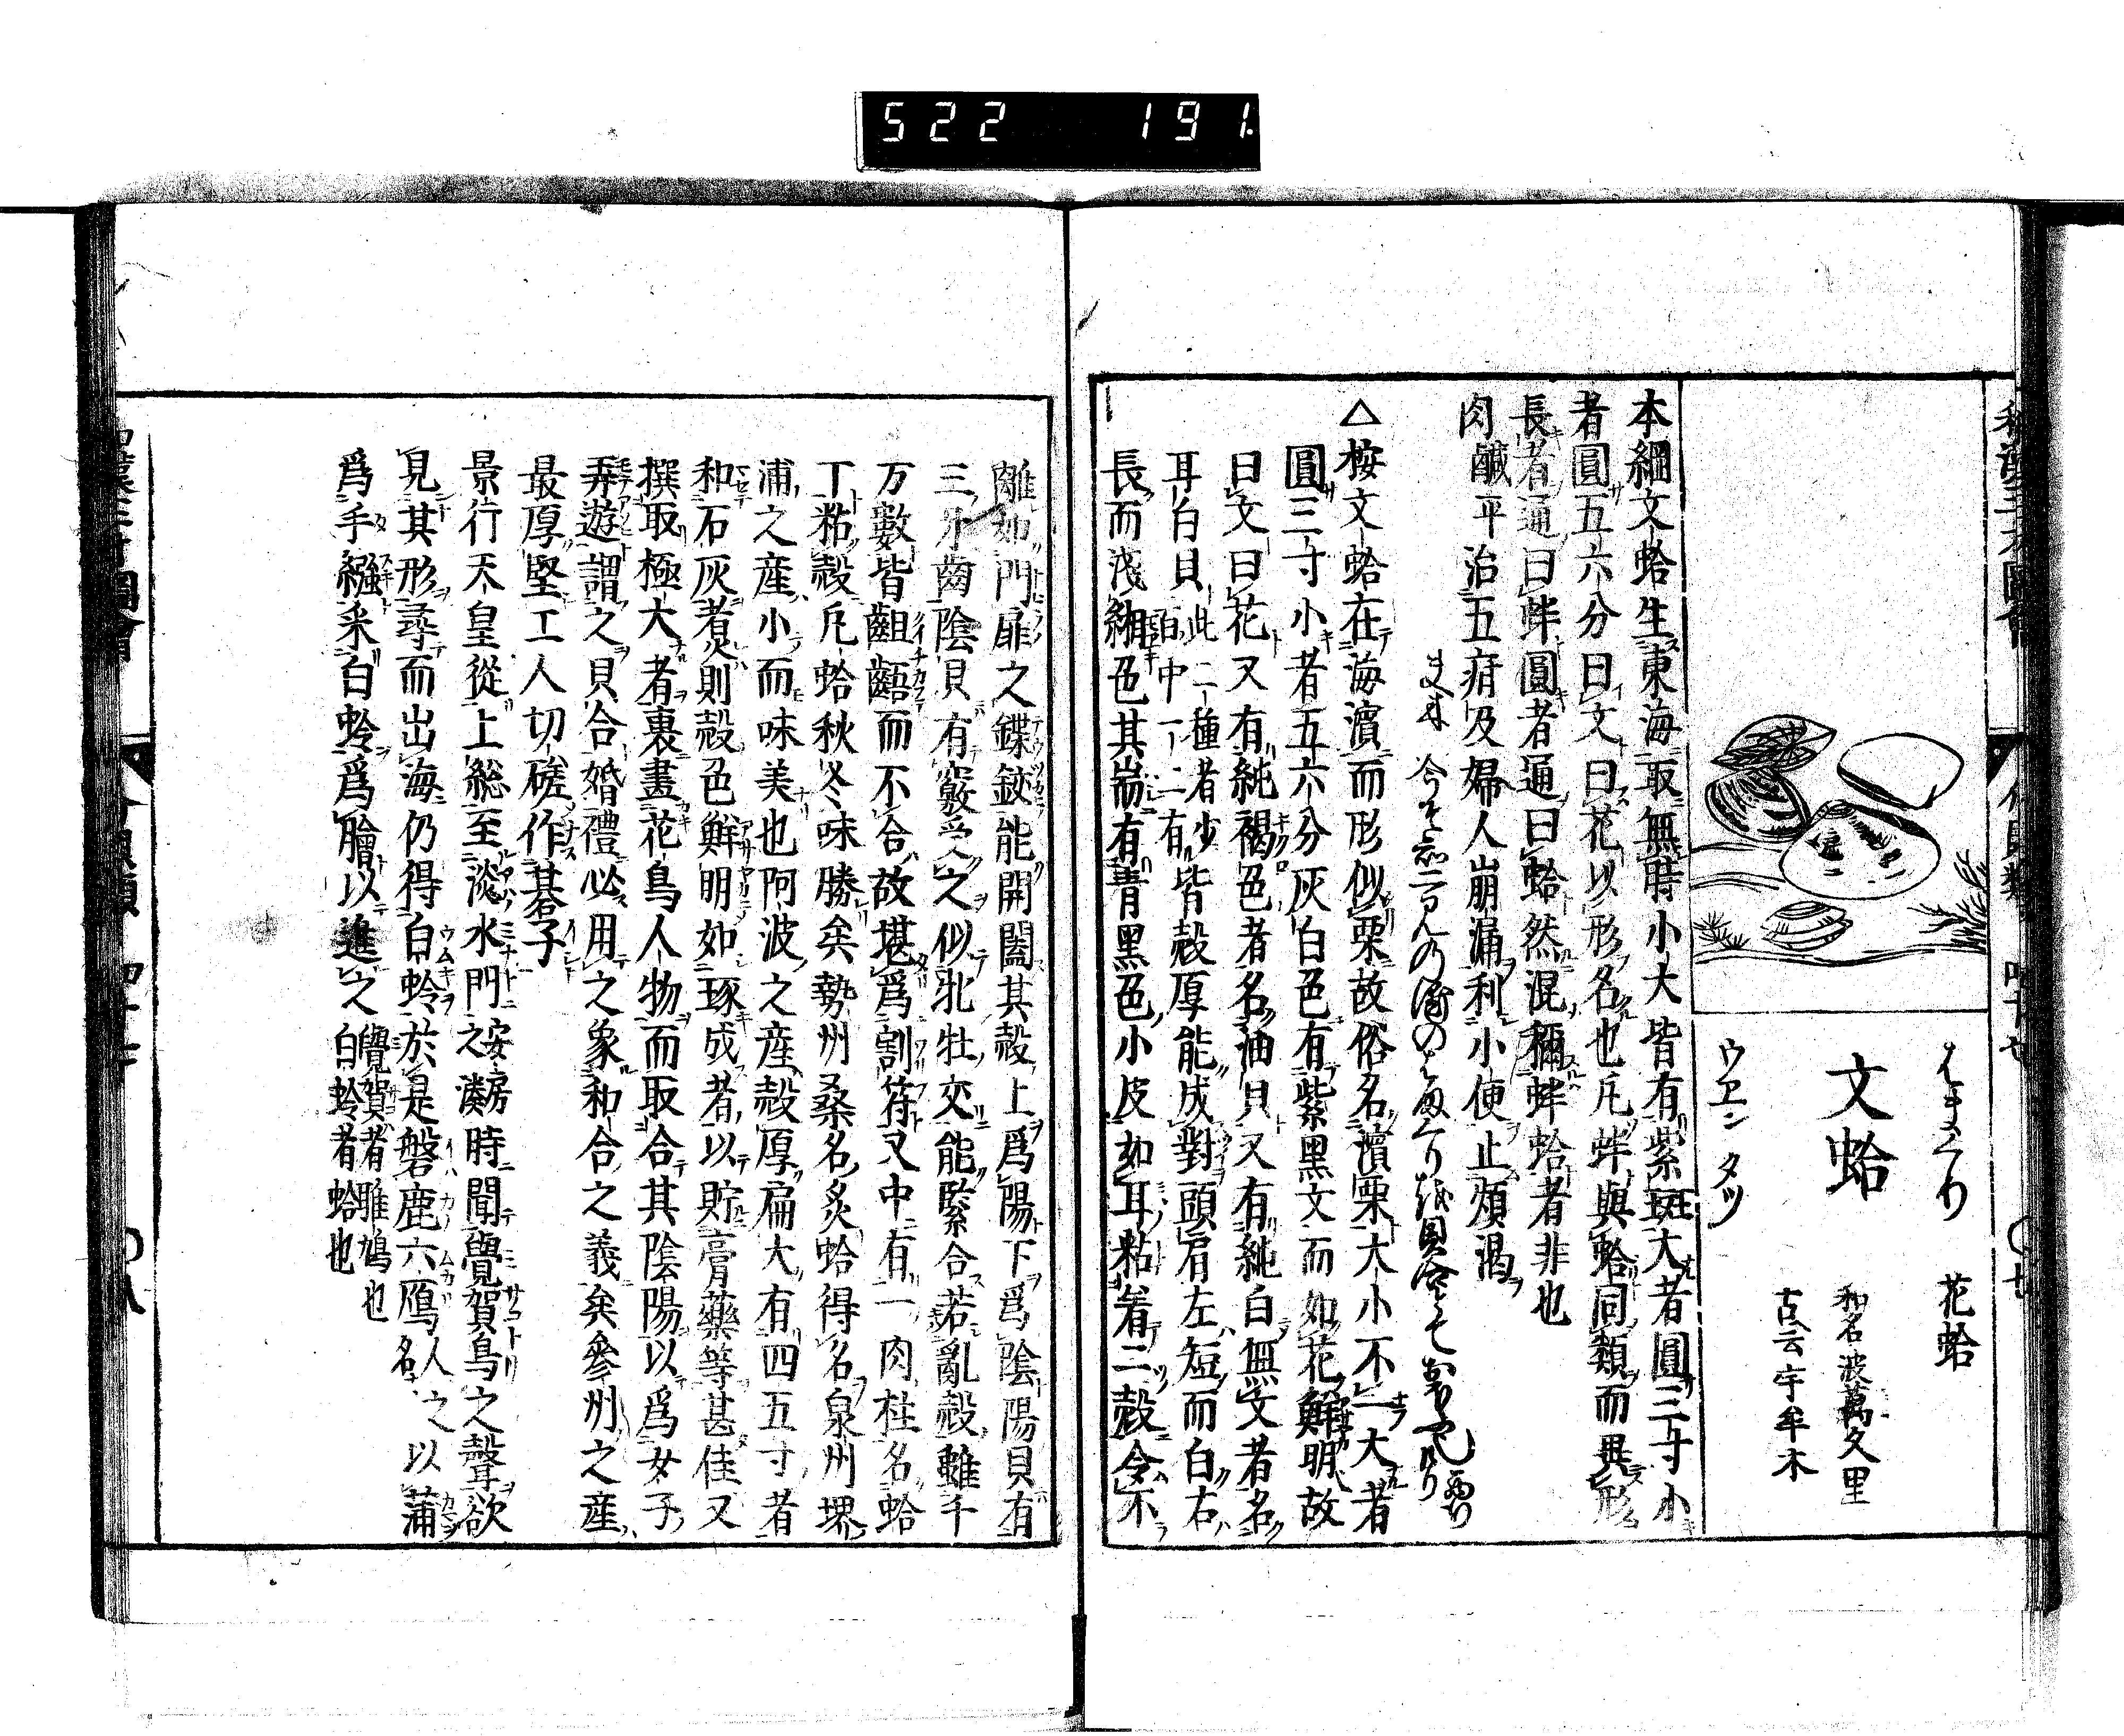 522 191
はまぐり
花蛤
文蛤
和名波萬久里
古云宇牟木
ウエン タツ
本綱文蛤生東海取無時小大皆有紫斑大者圓三寸小
者圓五六分曰文曰花以形名也凡蚌與蛤同類而異形
長者通曰蚌圓者通曰蛤然混稱蚌蛤者非也
肉鹹平治五痔及婦人崩漏利小便止煩渇
今そ知二見の浦のはまぐりを貝合とておおふなりけり 西行
△桉文蛤在海濵而形似栗故俗名濵栗大小不一大者
圓三寸小者五六分灰白色有紫黒文而如花鮮明故
曰文曰花又有純褐色者名油貝又有純白無文者名
耳白貝此二種者少百中一二有皆殻厚能成對頭肩左短而白右
長而淺緗色其耑有青黒色小皮如耳粘着二殻令不
離如門扉之鐷鉸能開闔其殻上爲陽下爲陰陽貝有
三牙齒陰貝有竅受之似牝牡交能緊合若亂殻雖千
万數皆齟齬而不合故堪爲割符又中有一肉柱名蛤
丁粘殻凡蛤秋冬味勝矣勢州桑名炙蛤得名泉州堺
浦之産小而味美也阿波之産殻厚扁大有四五寸者
和石灰煑則殻色鮮明如琢成者以貯膏藥等甚佳又
撰取極大者裏畫花鳥人物而取合其陰陽以爲女子
弄遊謂之貝合婚禮必用之象和合之義矣參州之産
最厚堅工人切磋作碁子
景行天皇從上総至淡水門安房之湊時聞覺賀鳥之聲欲
見其形尋而出海仍得白蛤於是磐鹿六鴈人之名以蒲
爲手繦采白蛤爲膾以進之覺賀者雎鳩也白蛤者蛤也